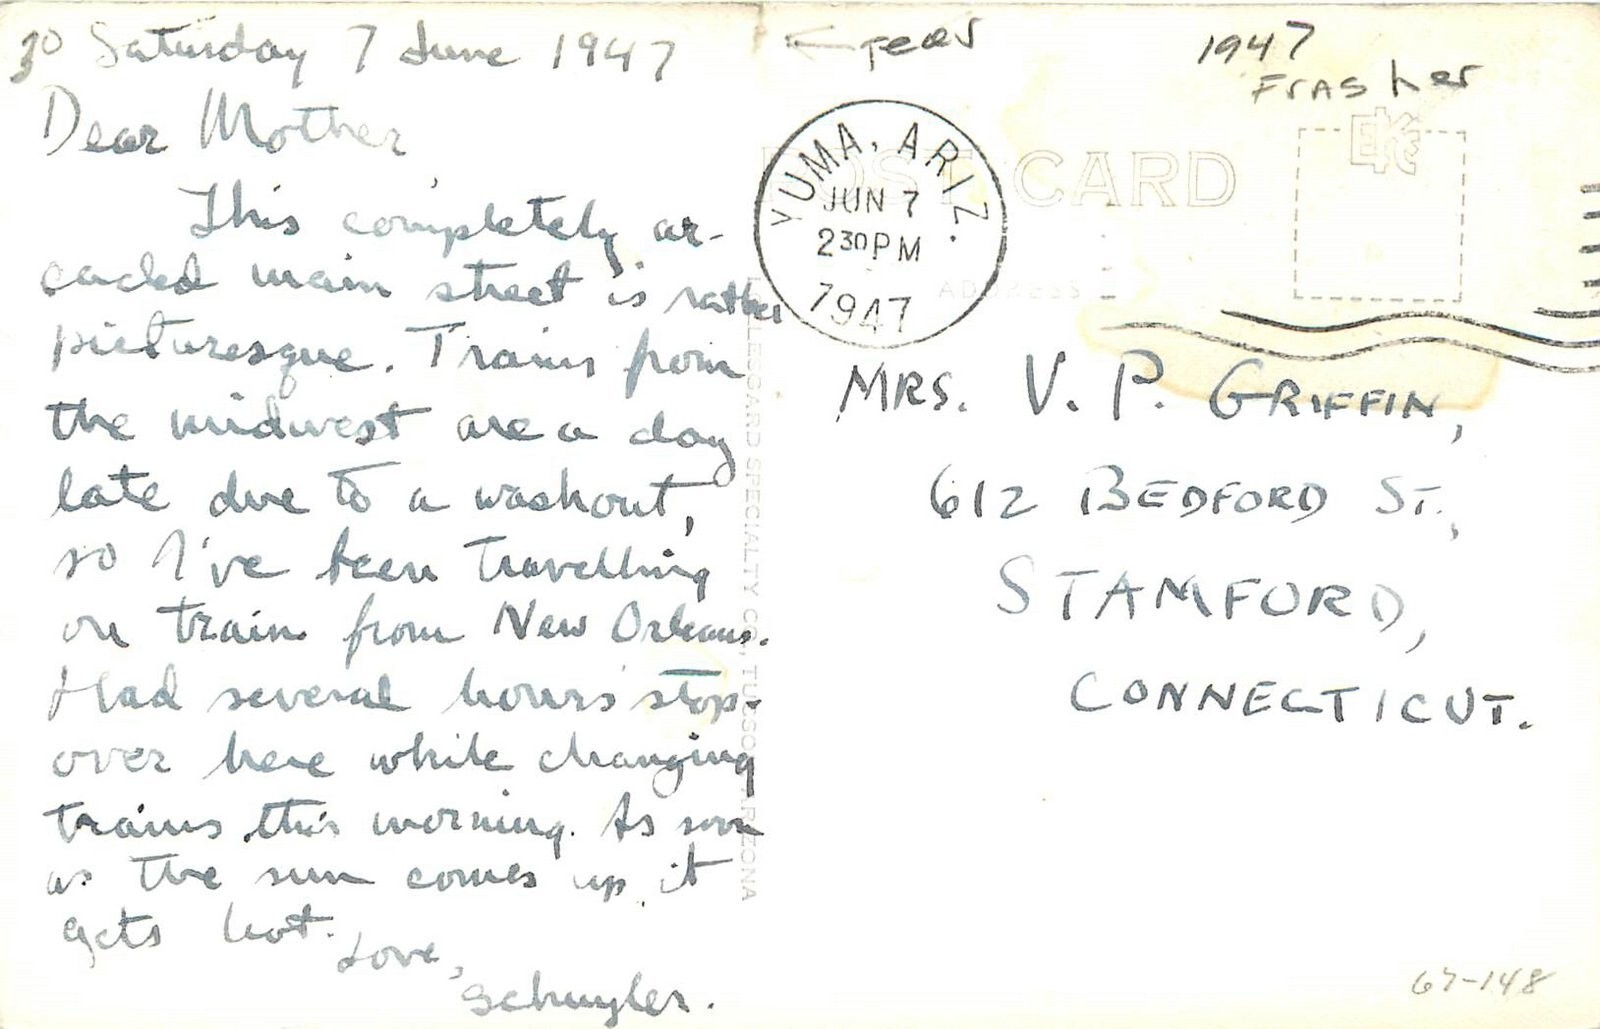 30 Saturday 7 June 1947
Dear Mother
This completely ar-
caded main street is rather
picturesque. Trains from
the midwest are a day
late due to a washout,
so I've been travelling
on train from New Orleans.
Had several hours' stop-
over here while changing
trains this morning. As soon
as the sun comes up it
gets hot.
Love,
Schuyler.
LOLLESGARD SPECIALTY CO., TUCSON, ARIZONA
← tear
1947
Frasher
POST CARD
EKC
ADDRESS
YUMA, ARIZ.
JUN 7
230 PM
1947
MRS. V. P. GRIFFIN,
612 BEDFORD ST.,
STAMFORD,
CONNECTICUT.
67-148